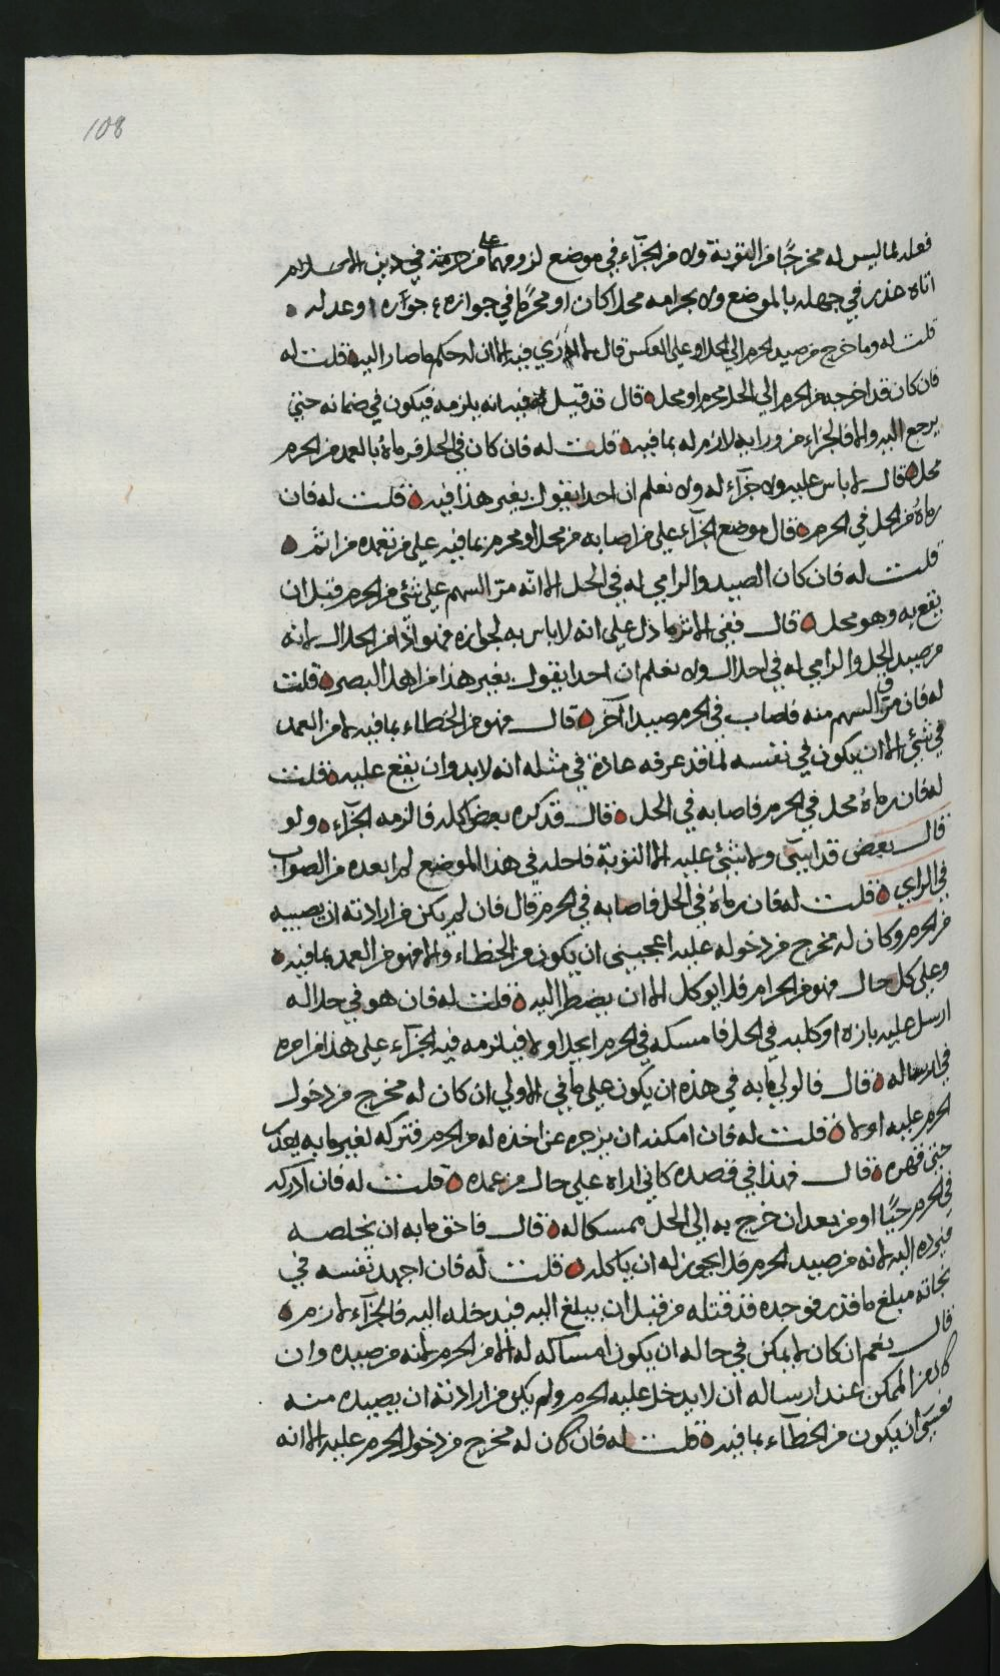 108
فعله لما ليس له مخرجًا من التوبة ولا من الجزآء في موضع لزومهما على من حرمته في دين الاسلام
اتاه عذر في جهله بالموضع ولا بحرامه محلا كان او محرمًا في جوازه جوآره اوعدله
قلت له وما خرج من صيد الحرم الي الحل او علي العكس قال لا ارَي فيه الا ان له حكم ما صار اليه قلت له
فان كان قد اخرجه من الحرم الي الحل محرم او محل قال قد قيل فيه انه يلزمه فيكون في ضمانه حتي
يرجع اليه والا فالجزاء من ورايه لازم له بما فيه قلت له فان كان في الحل فرماهُ بالعمد من الحرم
محل قال لا باس عليه ولا جزآء له ولا نعلم ان احدا يقول بغير هذا فيه قلت له فان
رماهُ من الحل في الحرم قال موضع الجزآء علي من اصابه من محل او محرم بما فيه علي من تعمده من اثم
قلت له فان كان الصيد والرامي له في الحل الا انّه مرّ السهم علي شئي من الحرم قبل ان
يقع به وهو محل قال ففي الاثر ما دل علي انه لا باس به لجوازه فهو اذًا من الحلال لانه
من صيد الحل والرامي له في احلال ولا نعلم ان احدا يقول بغير هذا من اهل البصر قلت
له فان مرق السهم منه فاصاب في الحرم صيدا آخر قال فهو من الخطاء بما فيه لا من العمد
في شئي الا ان يكون في نفسه لما قد عرفه عادة في مثله انه لا بد وان يقع عليه قلت
له فان رماهُ محل في الحرم فاصابه في الحل قال قد كره بعض اكله فالزمه الجزآء ولو
قال بعض قد اسآى ولا شئي عليه الا التوبة فاحله في هذا الموضع لم ابعده من الصواب
في الراي قلت له فان رماهُ في الحل فاصابه في الحرم قال فان لم يكن من ارادته ان يصيبه
من الحرم وكان له مخرج من دخوله عليه اعجبني ان يكون من الخطاء والا فهو من العمد بما فيه
وعلي كل حال فهو من الحرام فلا يوكل الا ان يضطر اليه قلت له فان هو في حلاله
ارسل عليه بازه او كلبه في الحل فامسكه في الحرم ايحل او لا فيلزمه فيه الجزآء علي هذا من امره
في ارساله قال فالولي ما به في هذه ان يكون علي ما في الاولي ان كان له مخرج من دخول
الحرم عليه او لا قلت له فان امكنه ان يزجره عن اخذه له من الحرم فتركه لغير ما به يعذر
حتي قهره قال فهذا في قصده كاني اراه علي حال من عمده قلت له فان ادركه
في الحرم حيًّا او من بعد ان خرج به الي الحل ممسكا له قال فاحق ما به ان يخلصه
فيرده اليه لانه من صيد الحرم فلا يجوز له ان ياكله قلت له فان اجهد نفسه في
نجاته مبلغ ما قدر فوجده قد قتله من قبل ان يبلغ اليه فيدخله اليه فالجزآء لازم
قال نعم ان كان لا يمكن في حاله ان يكون امساكه له الا من الحرم لانه من صيده وان
كان من الممكن عند ارساله ان لا يدخل عليه الحرم ولم يكن من ارادته ان يصيده منه
فعسَي ان يكون من الخطآء بما فيه قلت له فان كان له مخرج من دخول الحرم عليه الا انه